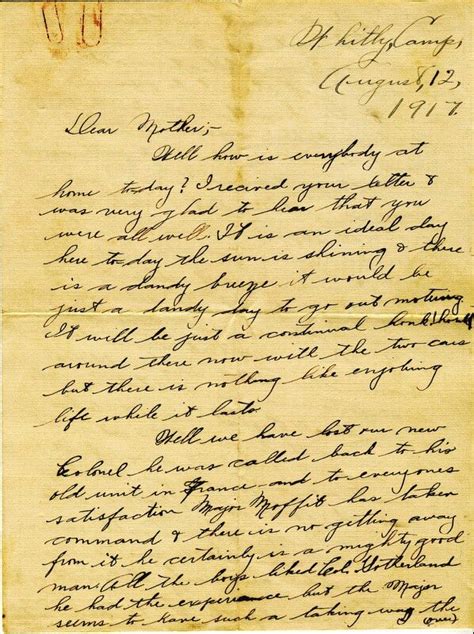 Whitly, Camp,
August, 12,
1917.
Dear Mother;-
Well how is everybody at
home to-day? I recived your letter &
was very glad to hear that you
were all well. It is an ideal day
here to-day the sun is shining & there
is a dandy breeze it would be
just a dandy day to go out motoring
It will be just a continual honk! honk!
around there now with the two cars
but there is nothing like enjoying
life while it lasts.
Well we have lost our new
Colonel he was called back to his
old unit in France and to everyones
satisfaction Major Moffit has taken
command & there is no getting away
from it he certainly is a mighty good
man. All the boys liked Col. Sotherland
he had the experience but the Major
seems to have such a taking way the
(over)